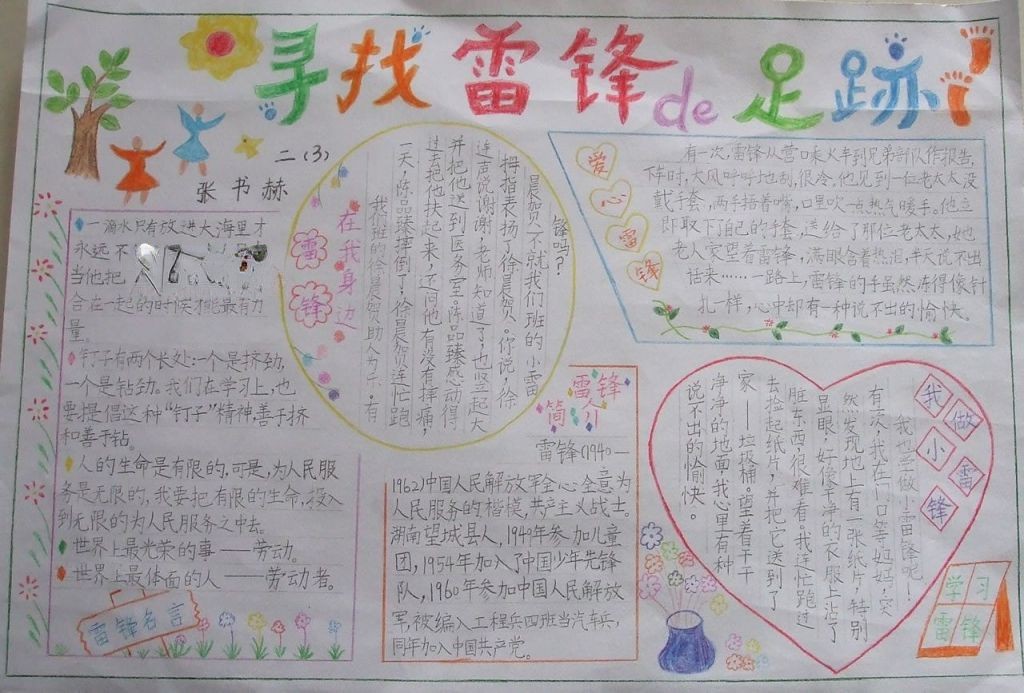 寻找雷锋de足迹
二(3)
张书赫
一滴水只有放进大海里才
永远不
当他把
合在一起的时候才能最有力
量。
钉子有两个长处:一个是挤劲,
一个是钻劲。我们在学习上,也
要提倡这种“钉子”精神,善于挤
和善于钻。
人的生命是有限的,可是,为人民服
务是无限的,我要把有限的生命,投入
到无限的为人民服务之中去。
世界上最光荣的事——劳动。
世界上最体面的人——劳动者。
雷锋名言
雷锋
在我身边
我们班的徐晨贺助人为乐,有
一天,陈品臻摔倒了!徐晨贺连忙跑
过去把他扶起来,还问他有没有摔痛,
并把他送到医务室。陈品臻感动得
连声说谢谢,老师知道了,也竖起大
拇指表扬了徐晨贺。你说,徐
晨贺不就我们班的小雷
锋吗?
爱心雷锋
有一次,雷锋从营口乘火车到兄弟部队作报告,
下车时,大风呼呼地刮,很冷,他见到一位老太太没
戴手套,两手捂着嘴,口里吹一点热气暖手。他立
即取下自己的手套,送给了那位老太太,她
老人家望着雷锋,满眼含着热泪,半天说不出
话来……一路上,雷锋的手虽然冻得像针
扎一样,心中却有一种说不出的愉快。
雷锋
简介
雷锋(1940—
1962)中国人民解放军全心全意为
人民服务的楷模,共产主义战士。
湖南望城县人,1949年参加儿童
团,1954年加入了中国少年先锋
队,1960年参加中国人民解放
军,被编入工程兵四班当汽车兵,
同年加入中国共产党。
我做小雷锋
我也学做小雷锋呢!
有次,我在门口等妈妈,突
然发现地上有一张纸片,特别
显眼,好像干净的衣服上沾了
脏东西,很难看。我连忙跑过
去捡起纸片,并把它送到了
家——垃圾桶。望着干干
净净的地面我心里有种
说不出的愉快。
学习
雷锋